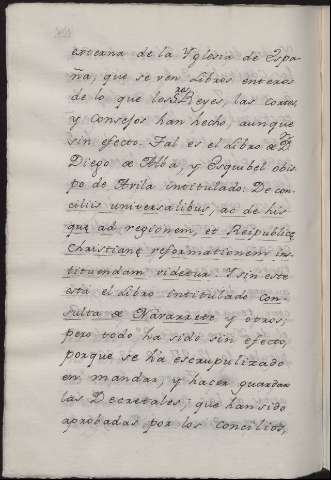 externa de la Yglesia de Espa-
ña, que se ven Libros enteros
de lo que los S.res Reyes, las Cortes,
y Consejos han hecho, aunque
sin efecto. Tal es el Libro de D.n
Diego de Alba, y Esquibel obis
po de Avila intitulado: De con-
ciliis universalibus, ac de his
quæ ad regionem, et Reipublicæ
Christianæ reformationem ins
tituendam videtur. Y sin este
está el Libro intitulado Con-
sulta de Navarrete y otros;
pero todo ha sido sin efecto,
porque se ha escrupulizado
en mandar, y hacer guardar
las Decretales, que han sido
aprobadas por los concilios,